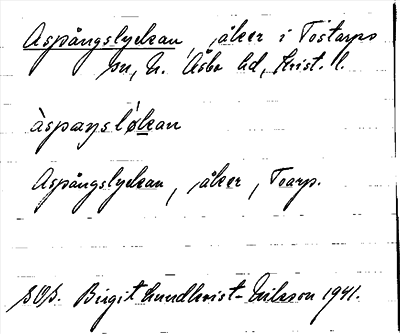 Aspångslyckan, åker i Tostarps
sn, N. Åsbo hd, Krist. l.
àspaŋsløkan
Aspångslyckan, åker, Toarp.
SOS. Birgit Lundkvist-Nilsson 1941.